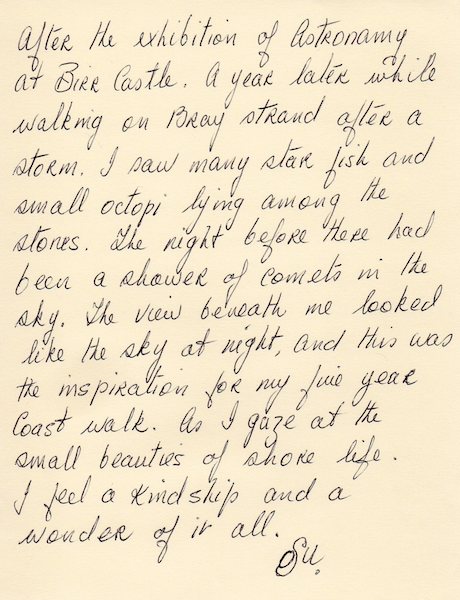 After the exhibition of Astronamy
at Birr Castle. A year later while
walking on Bray strand after a
storm. I saw many star fish and
small octopi lying among the
stones. The night before there had
been a shower of comets in the
sky. The view beneath me looked
like the sky at night, and this was
the inspiration for my five year
Coast walk. As I gaze at the
small beauties of shore life.
I feel a Kindship and a
wonder of it all.
SU.